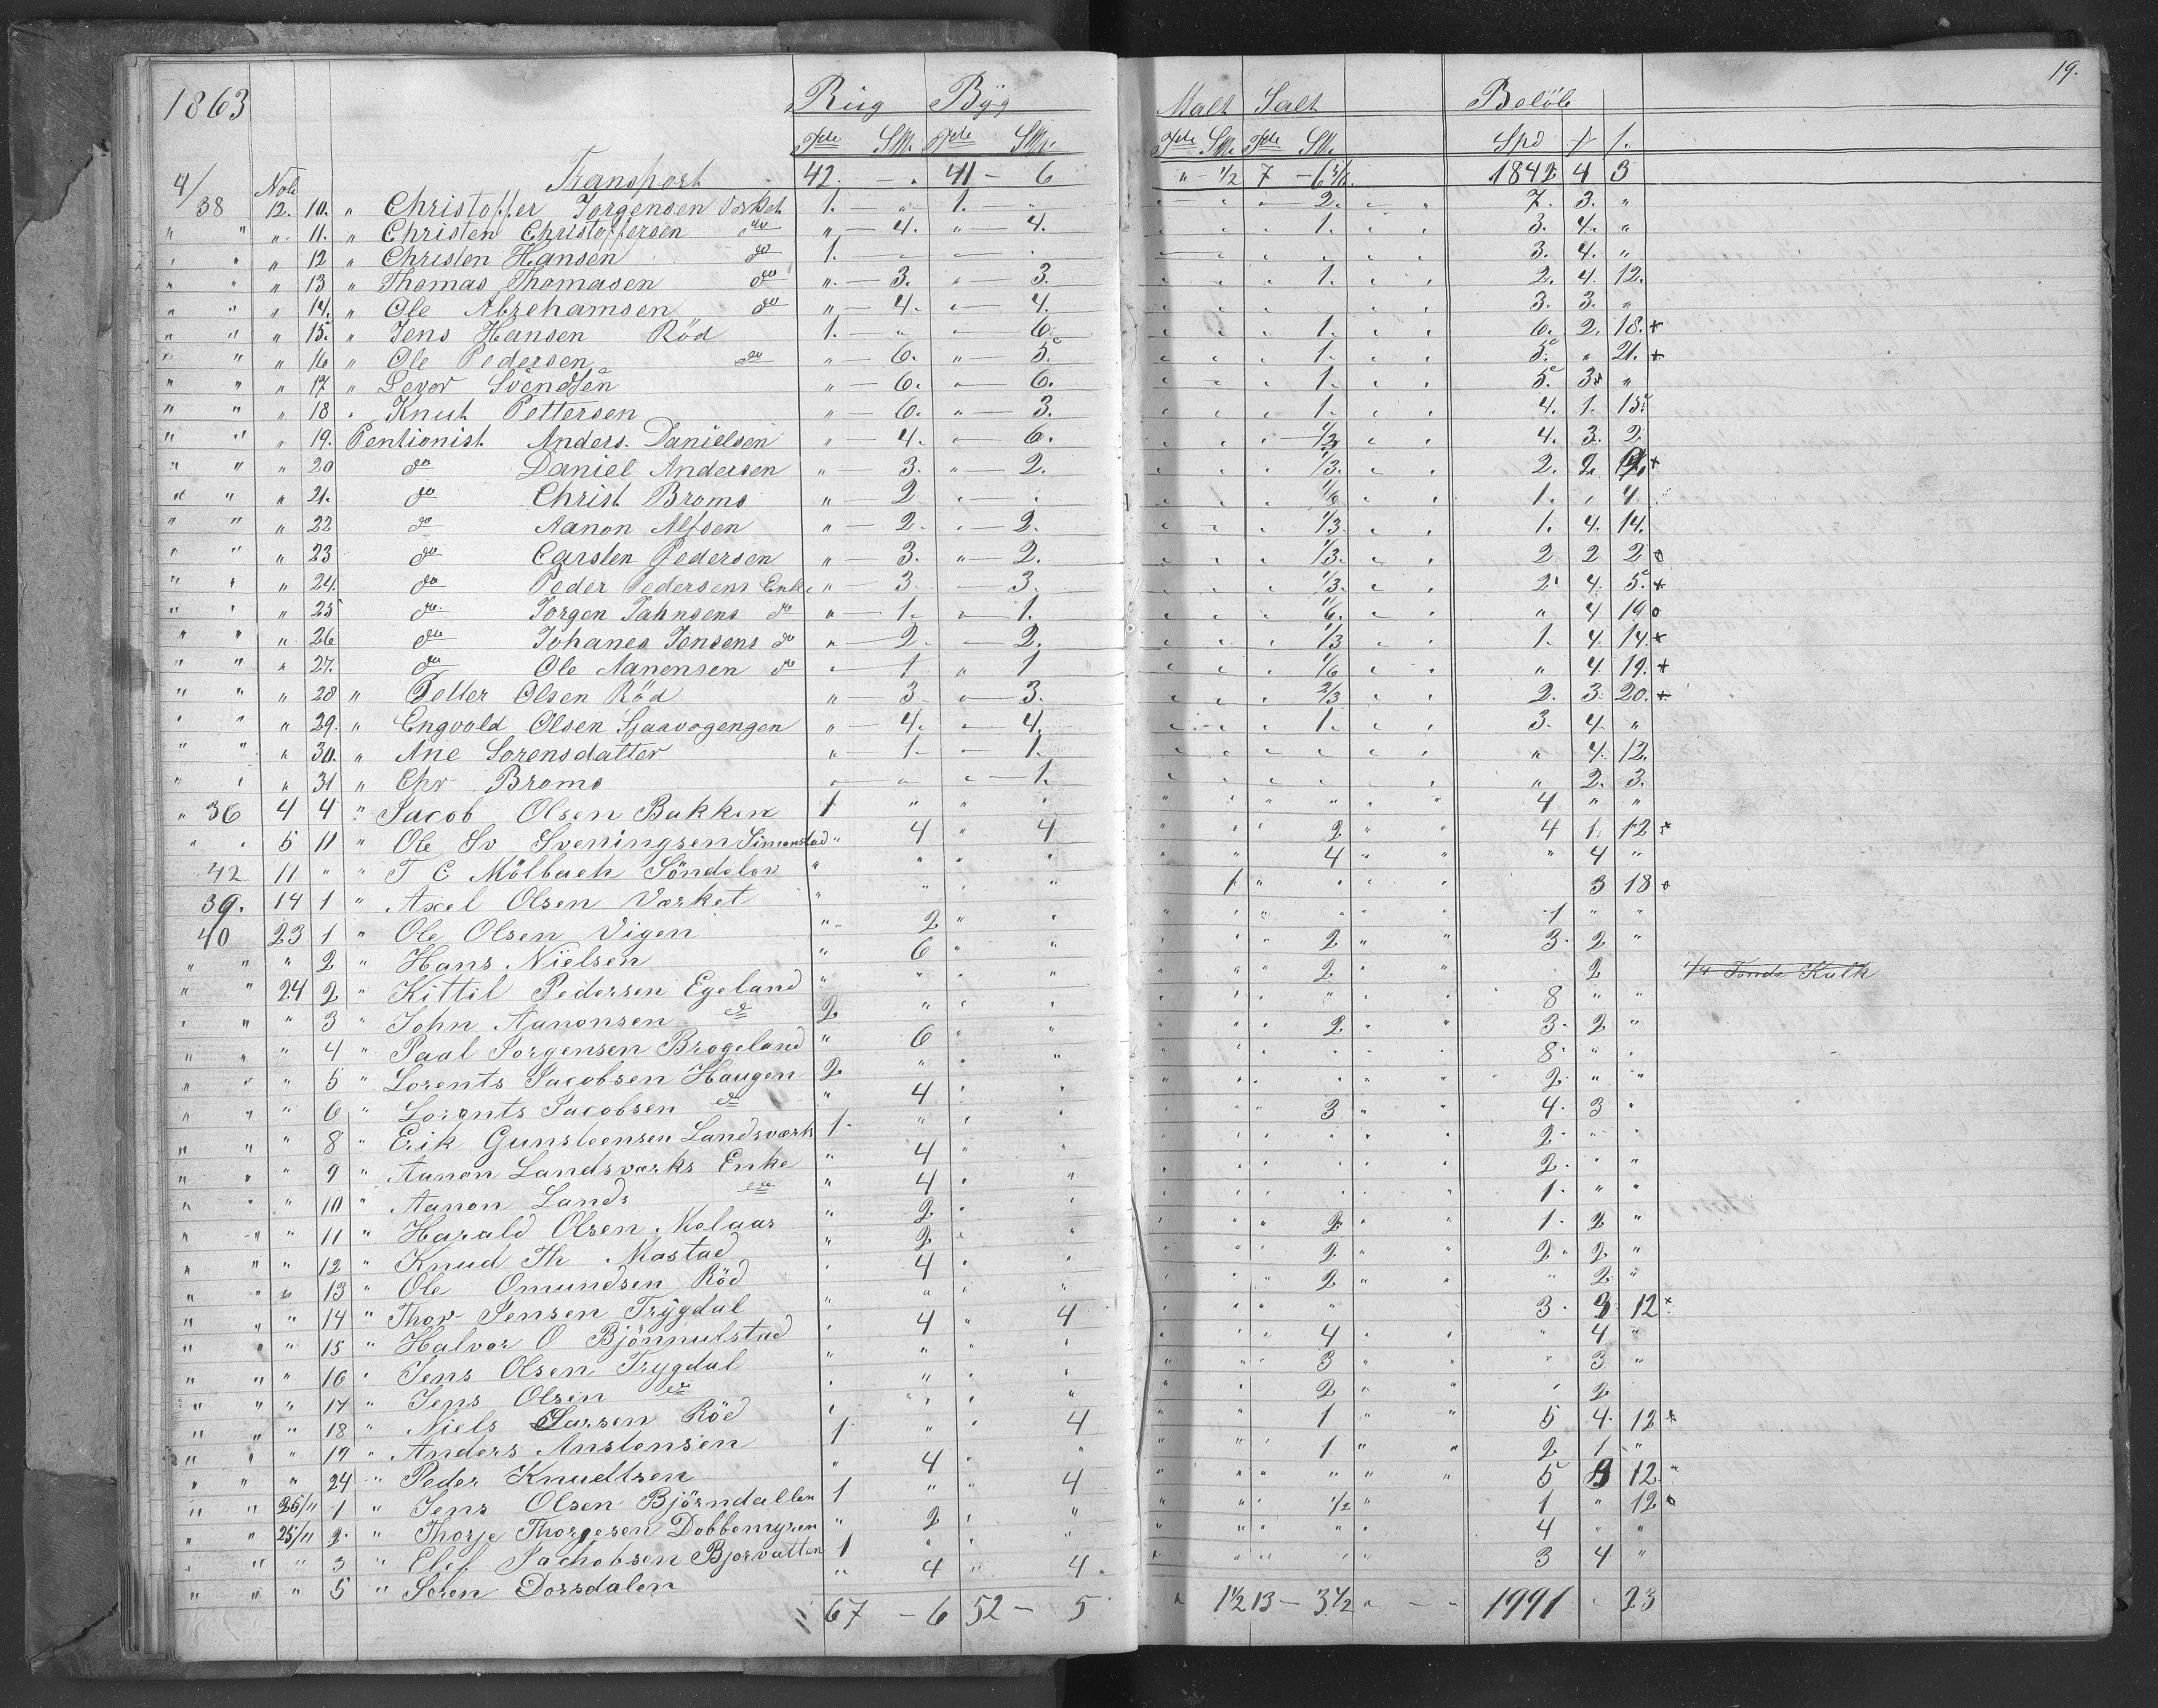 19.
1863 Rüg Byg Malt Salt Beløb
Tde Skk. Tde Skk. Tde Skk. Tde Skk. Spd
4/ Transport 42. - " 41 - 6 " - 1/2 7 - 1842 4 3
38 Nob 12. 10. " Christoffer Jorgensen Værket 1. " 1. " 2. 7. 3. "
" " " 11. " Christen Christoffersen do " - 4. " - 4. 1. 3. 4. "
" " " 12 " Christen Hansen do 1. 3. 4. "
" " " 13 " Thomas Thomasen do " - 3. " - 3. 1. 2. 4. 12.
" " " 14. " Ole Abrehamsen do " - 4. " - 4. 3. 3. "
" " " 15. " Jens Hansen Röd 1. " " - 6. 1. 6. 2. 18. +
" " " 16 " Ole Pedersen do " - 6. " - 5. 1. 5. " 21. +
" " " 17 " Levor Svendsen " - 6. " - 6. 1. 5. 3. "
" " " 18 " Knut Pettersen " - 6. " - 3. 1. 4. 1. 15.
" " " 19. Pentionist Anders. Danielsen " - 4. " - 6. 4. 3. 2
" " " 20 do Daniel Andersen " - 3. " - 2. 1/3. 2. 2. +
" " " 21. do Christ Broms " - 2 1/6 1. " 4
" " " 22 do Aanon Alfsen " - 2. " - 2. 1/3. 1. 4. 14.
" " " 23 do Carsten Pedersen " - 3. " - 2. 1/3. 2 2 2 o
" " " 24. do Peder Pedersens Enke " 3. - 3. 1/3. 2. 4. 5. +
" " " 25 do Jorgen Jahnsens do " - 1. " 1. 1/6. " 4 19 o
" " " 26 do Johanes Jensens do " - 2. - 2. 1/3 1. 4. 14. +
" " " 27. do Ole Aanensen do " - 1 " 1 1/6 " 4 19. +
" " " 28 " Petter Olsen Röd " 3. " - 3. 2/3 2. 3. 20. +
" " " 29. " Engvold Olsen Sjaavogengen " - 4. " - 4. 1. 3. 4. "
" " " 30. " Ane Sorensdatter " - 1. - 1. " 4. 12.
" " " 31 " Chr Broms " - 1. " 2. 3.
" 36 4 4 " Jacob Olsen Bakken 1 " " " 4 " "
" " 5 11 " Ole Sv Sveningsen Simonstad " 4 " 4 2 4 1. 12 *
42 11 " " T C Mölbach Söndelov " " " " 4 " 4 "
39. 14 1 " Axel Olsen Værket " " " " 1 3 18 o
40 23 1 " Ole Olsen Vigen " 2 " " 1 " "
" " " 2 " Hans Nielsen " 6 " " 2 3. 2 "
" " 24 2 " Kittil Pedersen Egeland " " " " 2 2 1/4 Tonde Kalk
" " " 3 " John Aanonsen do 2 " " " 8 " "
" " " 4 " Paal Jorgensen Brogeland " 6 " " 2 3. 2 "
" " " 5 " Lorents Jacobsen Haugen 2 " " " 8. " "
" " " 6 " Lorents Jacobsen do " 4 " " 2. " "
" " " 8 " Erik Gunsteensen Landsværk 1. " " " 3 4. 3 "
" " " 9 " Aanon Landsværks Enke " 4 " " 2. " "
" " " 10 " Aanon Lands do " 4 " " 2. " "
" " " 11 " Harald Olsen Melaas " 2 " " 1. " "
" " " 12 " Knud Th Mostad " 2 " " 2 1. 2 "
" " " 13 " Ole Omundsen Röd " 4 " " 2 2. 2. "
" " " 14 " Thor Jensen Trÿgdal " " " " 2 " 2. "
" " " 15 " Halvor O Bjönnulstad " 4 " 4 3. 3 12 x
" " " 16 " Jens Olsen Trygdal " " " " 4 " 4 "
" " " 17 " Jens Olsen do " " " " 3 " 3 "
" " " 18 " Niels Larsen Röd " " " " 2 " 2
" " " 19 " Anders Anstensen 1 " " 4 1 5 4. 12 *
" " " 24 " Peder Knudtsen " 4 " " 1 2 1 "
" " 25/11 1 " Jens Olsen Björndallen 1 " " 4 5 12
" " 25/11 2. " Thorje Thorgesen Dobbemyren " 2 " " 1/2 1 " 12 o
" " " 3 " Elef Jachobsen Bjorvatten 1 " " " 4 " "
" " " 5 " Soren Dorsdalen " 4 " 4. 3 4 "
67 - 6 52 - 5 " 1 1/2 13 - 3 1/2 1991 " 23